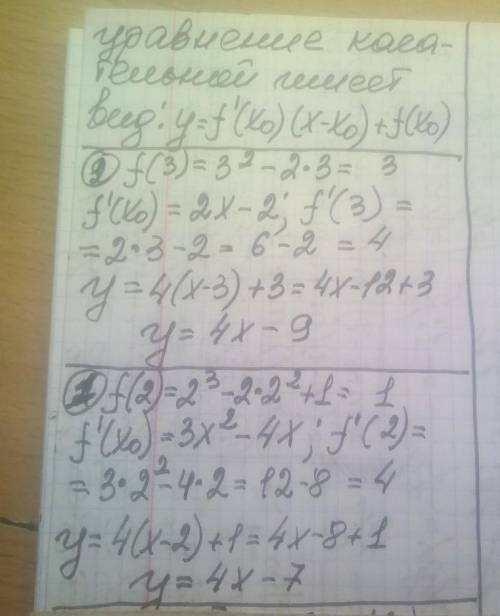 уравнение каса-
тельной имеет
вид: y=f'(x₀)(x-x₀)+f(x₀)
f(3)=3²-2·3= 3
f'(x₀)=2x-2; f'(3)=
=2·3-2=6-2=4
y=4(x-3)+3=4x-12+3
y=4x-9
f(2)=2³-2·2²+1= 1
f'(x₀)=3x²-4x; f'(2)=
=3·2²-4·2=12-8=4
y=4(x-2)+1=4x-8+1
y=4x-7